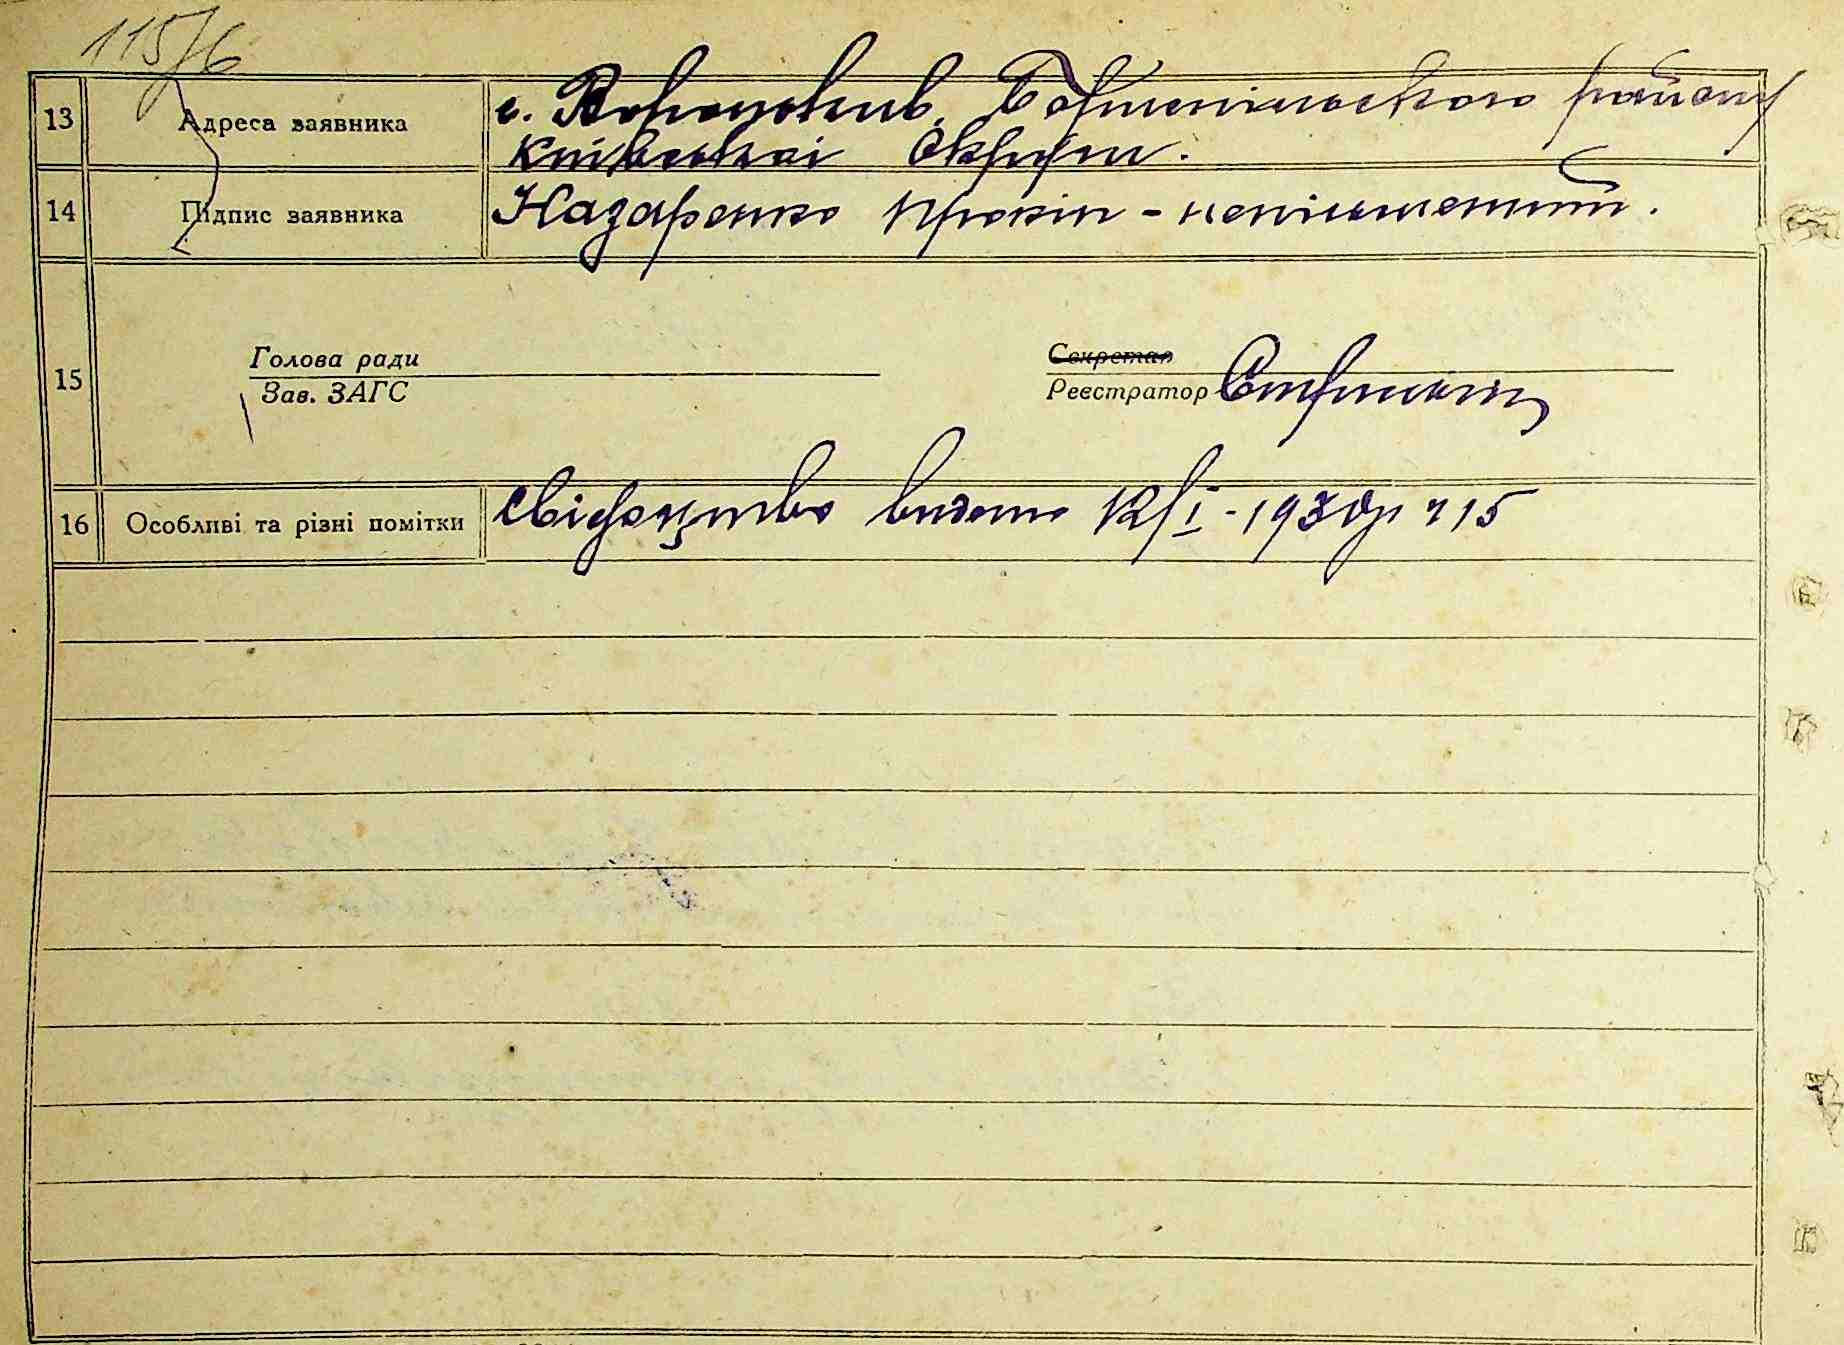 115/6
13 Адреса заявника с. Вороньків, Бориспільського району
Київської Округи.
14 Підпис заявника Назаренко Прокіп - неписьменний.
Голова ради Секретар
15 Зав. ЗАГС Реєстратор
16 Особливі та різні помітки Свідоцтво видано 12/I - 1930р ч 15